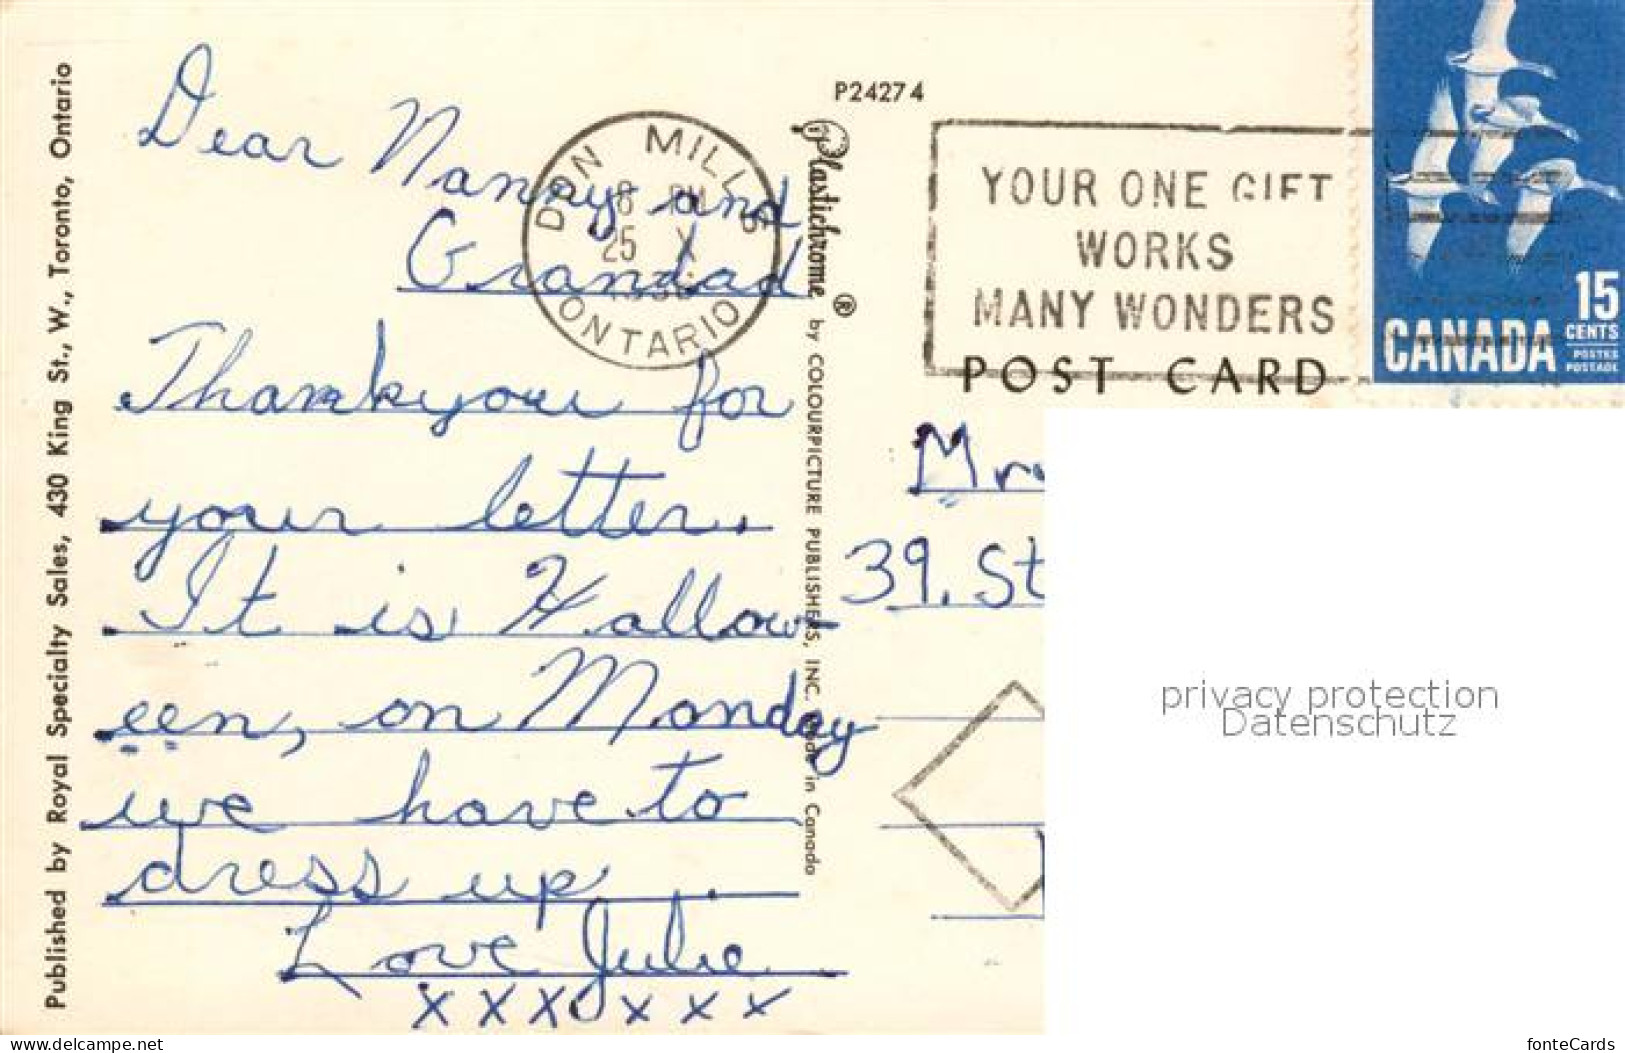 Published by Royal Specialty Sales, 430 King St., W., Toronto, Ontario
Dear Nanny and
Grandad
Thankyou for
your letter.
It is Hallow-
een, on Monday
we have to
dress up.
Love Julie
x x x x x x
DON MILLS
8 PM
25 X
ONTARIO
P24274
Plastichrome ® by COLOURPICTURE PUBLISHERS, INC. Made in Canada
YOUR ONE GIFT
WORKS
MANY WONDERS
POST CARD
15
CENTS
CANADA
POSTES
POSTAGE
39. St
privacy protection
Datenschutz
delcampe.net
fonteCards